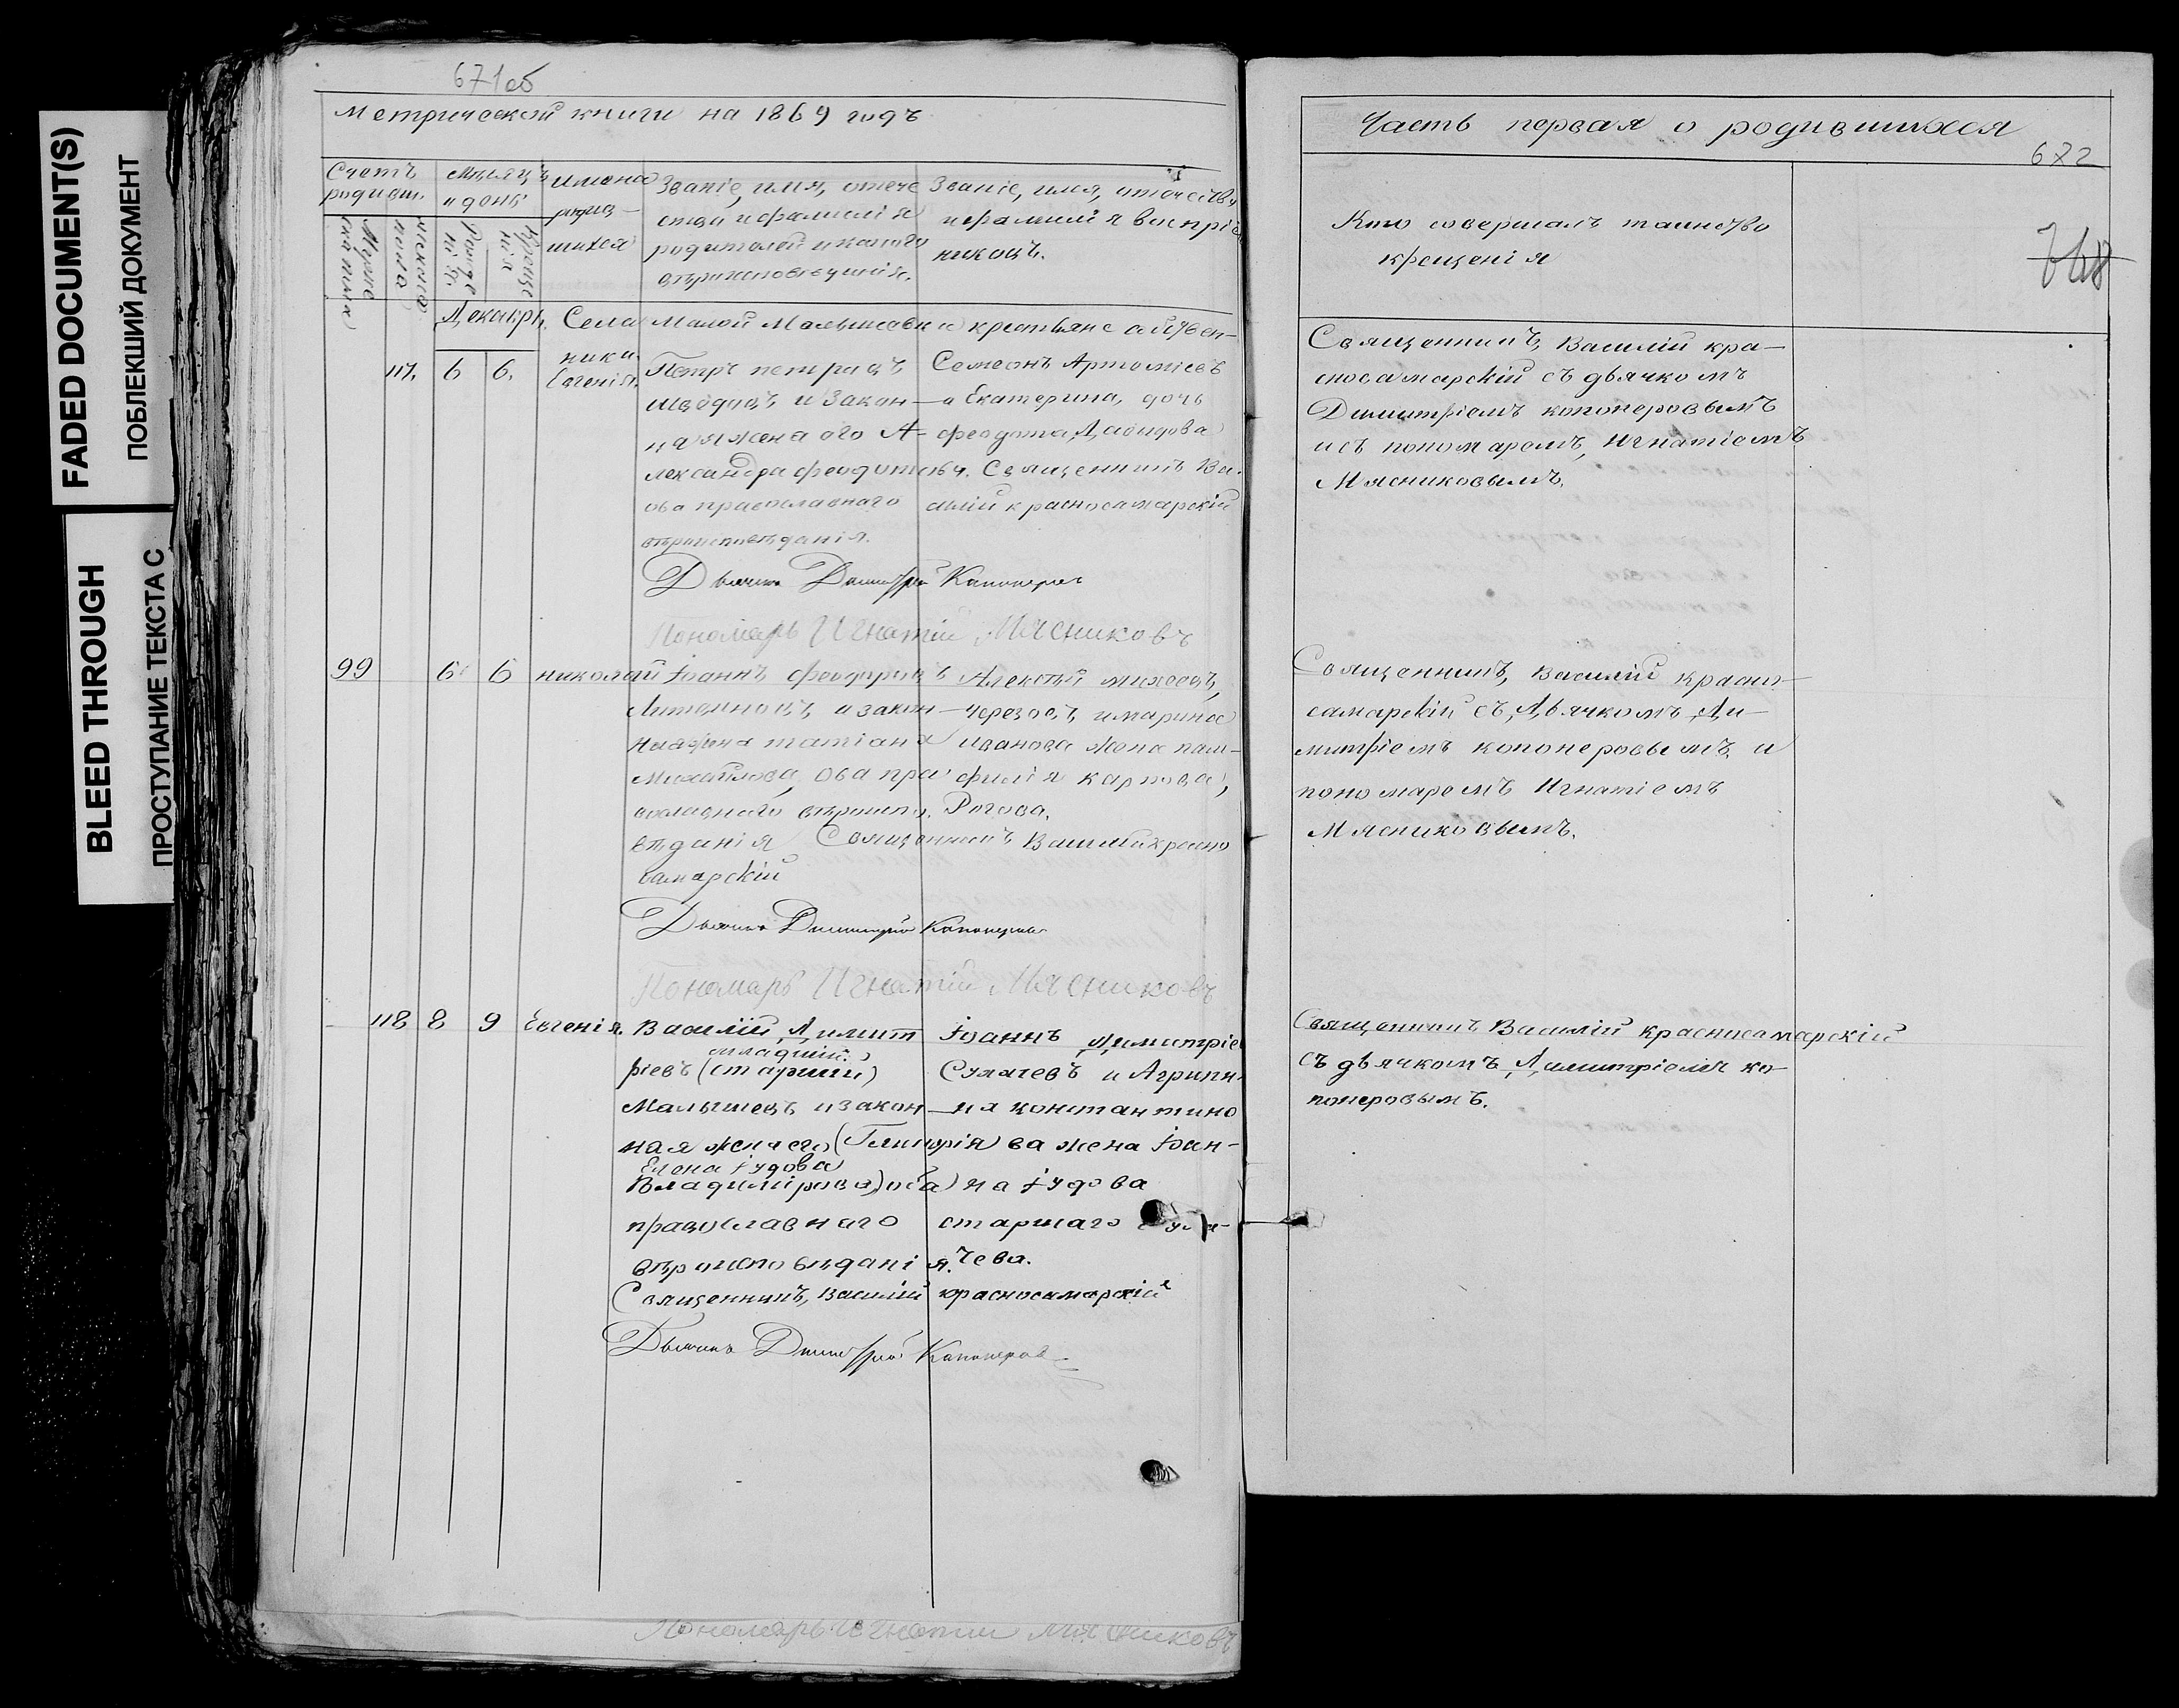 FADED DOCUMENT(S)
ПОБЛЕКШИЙ ДОКУМЕНТ
BLEED THROUGH
ПРОСТУПАНИЕ ТЕКСТА С
671об
Метрической книги на 1869 годъ
Счетъ родивш.
мужеска пола
женска пола
Мѣсяцъ и день
Рожденія.
Крещенія
имена родившихся
Званіе, имя, отечество и фамилія родителей и какого вѣроисповѣданія.
Званіе, имя, отечество и фамилія воспріемниковъ.
Декабрь.
Села Малой Малышевки крестьяне собствен-
ники.
117. 6 6. Евгенія.
Петръ петровъ
Шведовъ и закон-
ная жена его А-
лександра феодотова
оба православнаго
вѣроисповѣданія.
Семеонъ Артоміевъ
и Екатерина, дочь
феодота Давидова
Священникъ Василій красносамарскій
Дьячекъ Димитрій Капонеровъ
Пономарь Игнатій Мясниковъ
99 6 6 николай
Іоаннъ феодоровъ
Литвиновъ, и закон-
ная жена татіана
Михайлова, оба пра-
вославнаго вѣроиспо-
вѣданія
Алексѣй михеевъ,
и марина
иванова жена пам-
филія карпова,
Рогова.
Священникъ Василій красно
самарскій
Дьячекъ Димитрій Капонеровъ
Пономарь Игнатій Мясниковъ
118 8 9 Евгенія.
Василій Димит
младшій.
ріевъ (старшій)
Малышевъ и закон
ная жена его (Гликерія
Елена Іудова
Владимірова) оба
православнаго
вѣроисповѣданія.
Іоаннъ Димитріе
Сукачевъ и Агрипи-
на константино
ва жена Іоан-
на Іудова
старшаго
чева.
Священникъ, Василій красносамарскій
Дьячекъ Димитрій Капонеровъ
Пономарь Игнатий Мясниковъ
Часть первая о родившихся
672
Кто совершалъ таинство
крещенія
Священникъ, Василій кра-
сносамарскій съ дьячкомъ
Димитріемъ копонеровымъ
и съ пономаремъ, Игнатіемъ
Мясниковымъ.
Священникъ, Василій красно-
самарскій съ Дьячкомъ Ди-
митріемъ копонеровымъ и
пономаремъ Игнатіемъ
Мясниковымъ.
Священникъ Василій красносамарскій
съ дьячкомъ Димитріемъ ко-
понеровымъ.